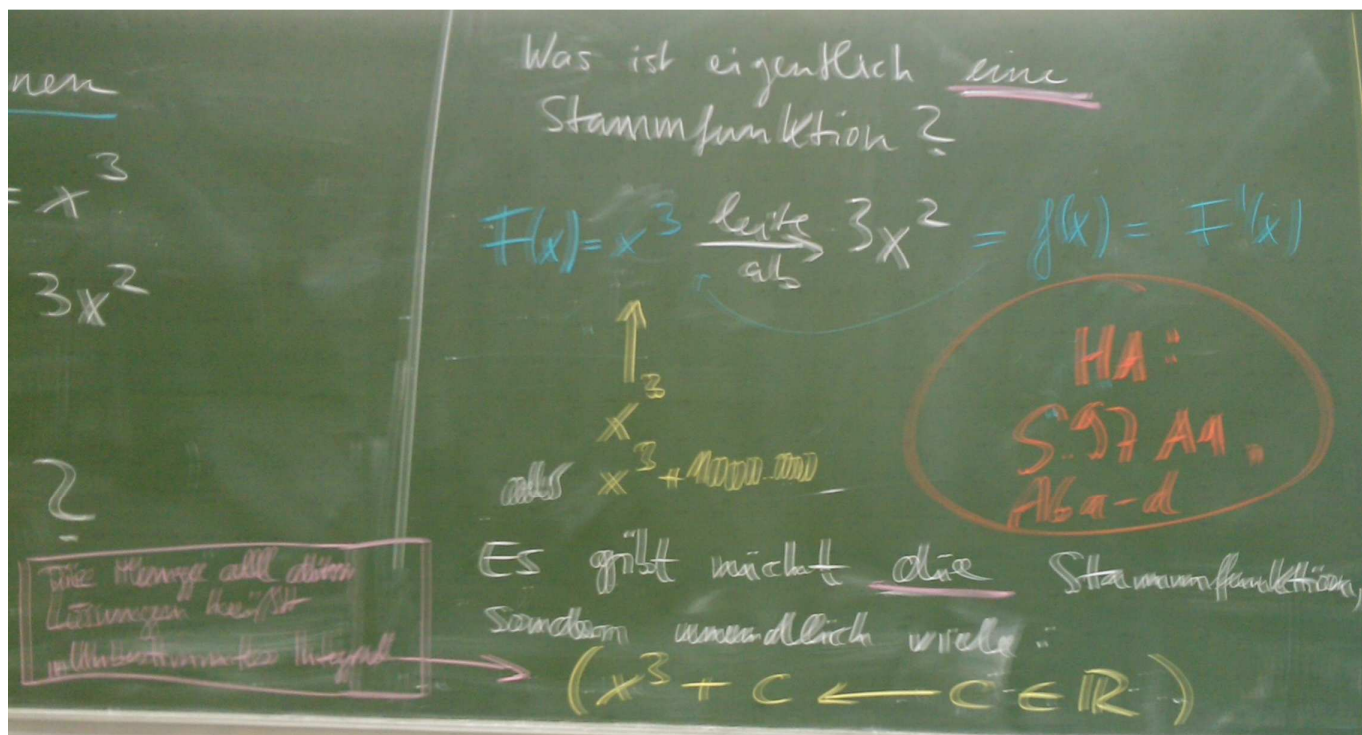 nen
= x³
3x²
?
Die Menge all dieser
Lösungen heißt
"Unbestimmtes Integral"
Was ist eigentlich eine
Stammfunktion?
F(x) = x³ leite ab → 3x² = f(x) = F'(x)
↑
x³
x³ + 1000 000
HA:
S. 97 A1.
A6 a-d
Es gibt nicht die Stammfunktion,
sondern unendlich viele:
(x³ + C ← C ∈ ℝ)